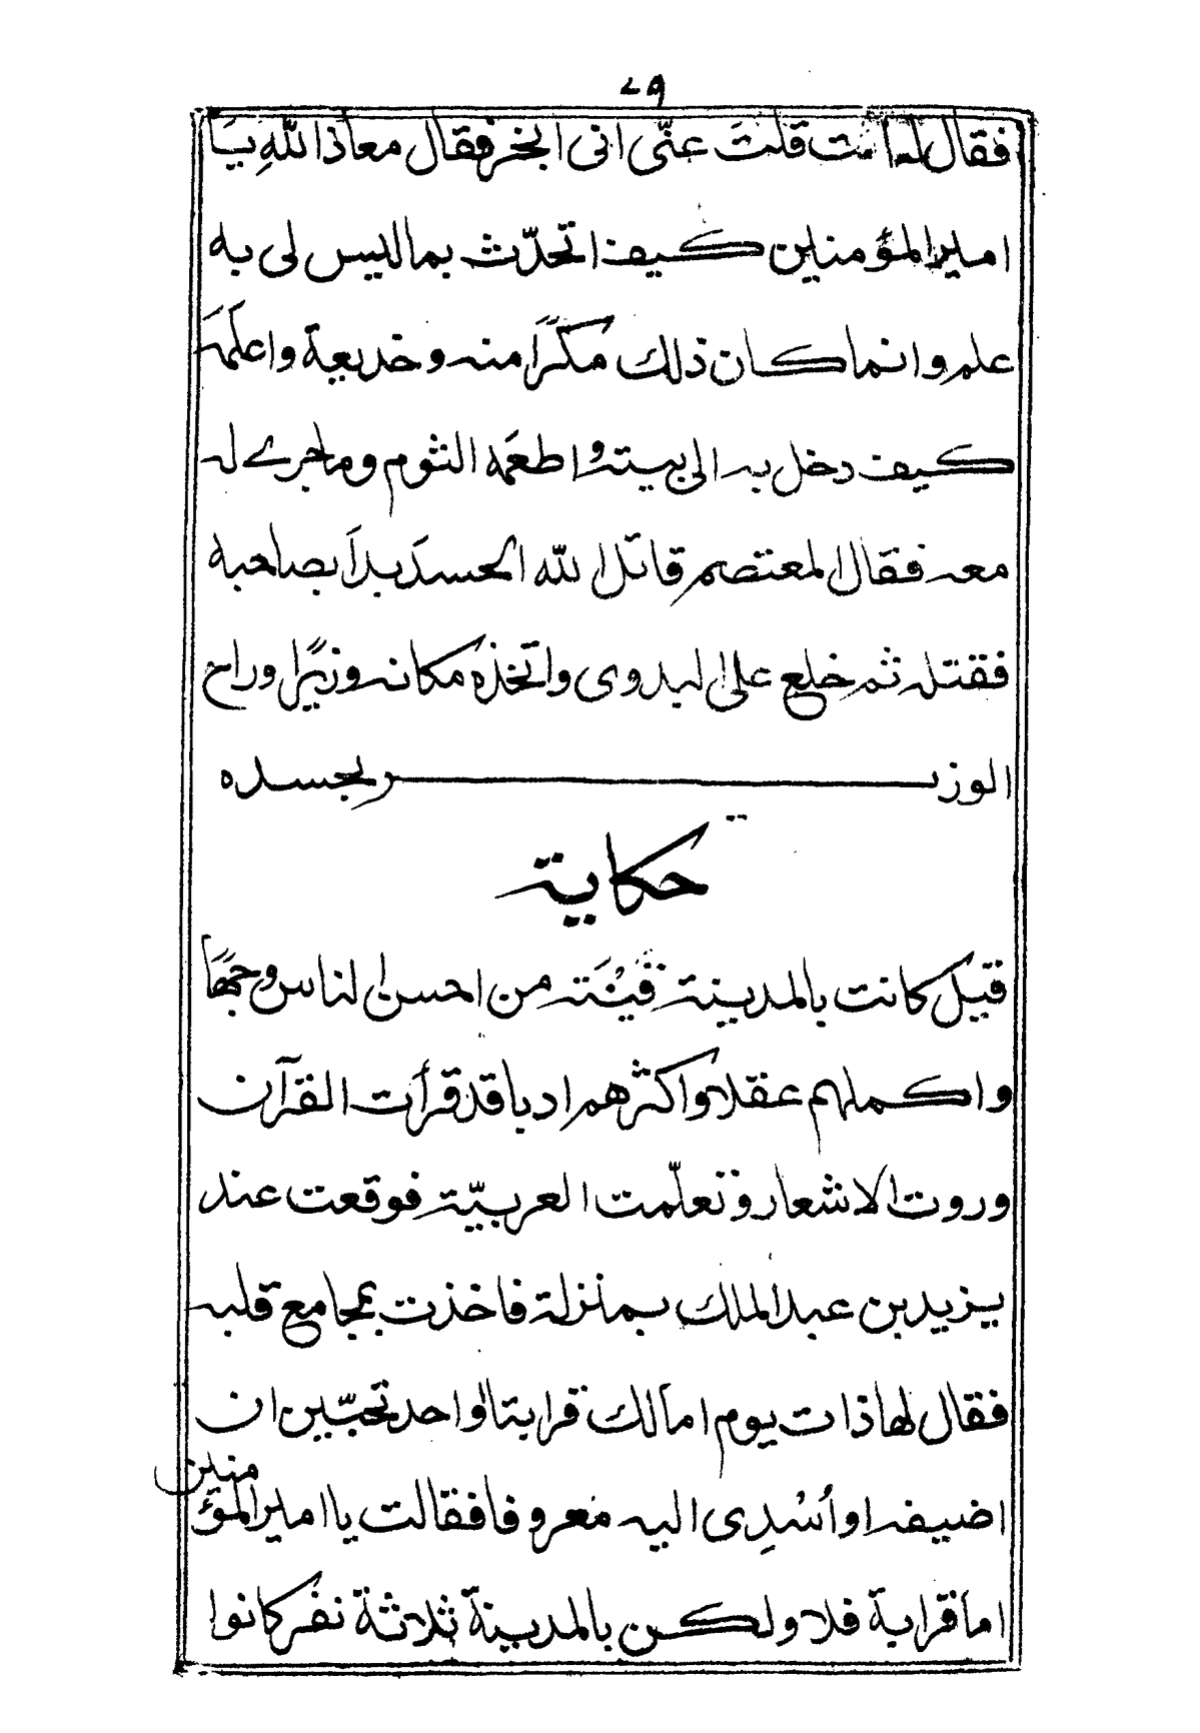 ٢٩
فقال له انت قلتَ عنّى انى ابخر فقال معاذ اللّٰهِ يَا
امير المؤمنين كيف اتحدّث بما ليس لى به
علم وانما كان ذلك مَكرًا منه وخديعة واعلَمَه
كيف دخل به الى بيته واطعَمه الثوم وما جرے له
معه فقال المعتصم قاتَل اللّه الحسدَ بدأ بصاحبه
فقتله ثم خلع على البدوى واتخذه مكانه وزيرًا وراح
الوزير بحسده
حكاية
قيل كانت بالمدينة قَيْنَة من احسن الناس وجهًا
واكملهم عقلا واكثرهم ادبا قد قرأت القرآن
وروت الاشعار وتعلّمت العربيّة فوقعت عند
يزيد بن عبد الملك بمنزلة فاخذت بمجامع قلبه
فقال لها ذات يوم اما لك قرابة او احد تحبّين ان
اضيفه او أسْدِى اليه معروفا فقالت يا امير المؤمنين
اما قرابة فلا ولكن بالمدينة ثلاثة نفر كانوا